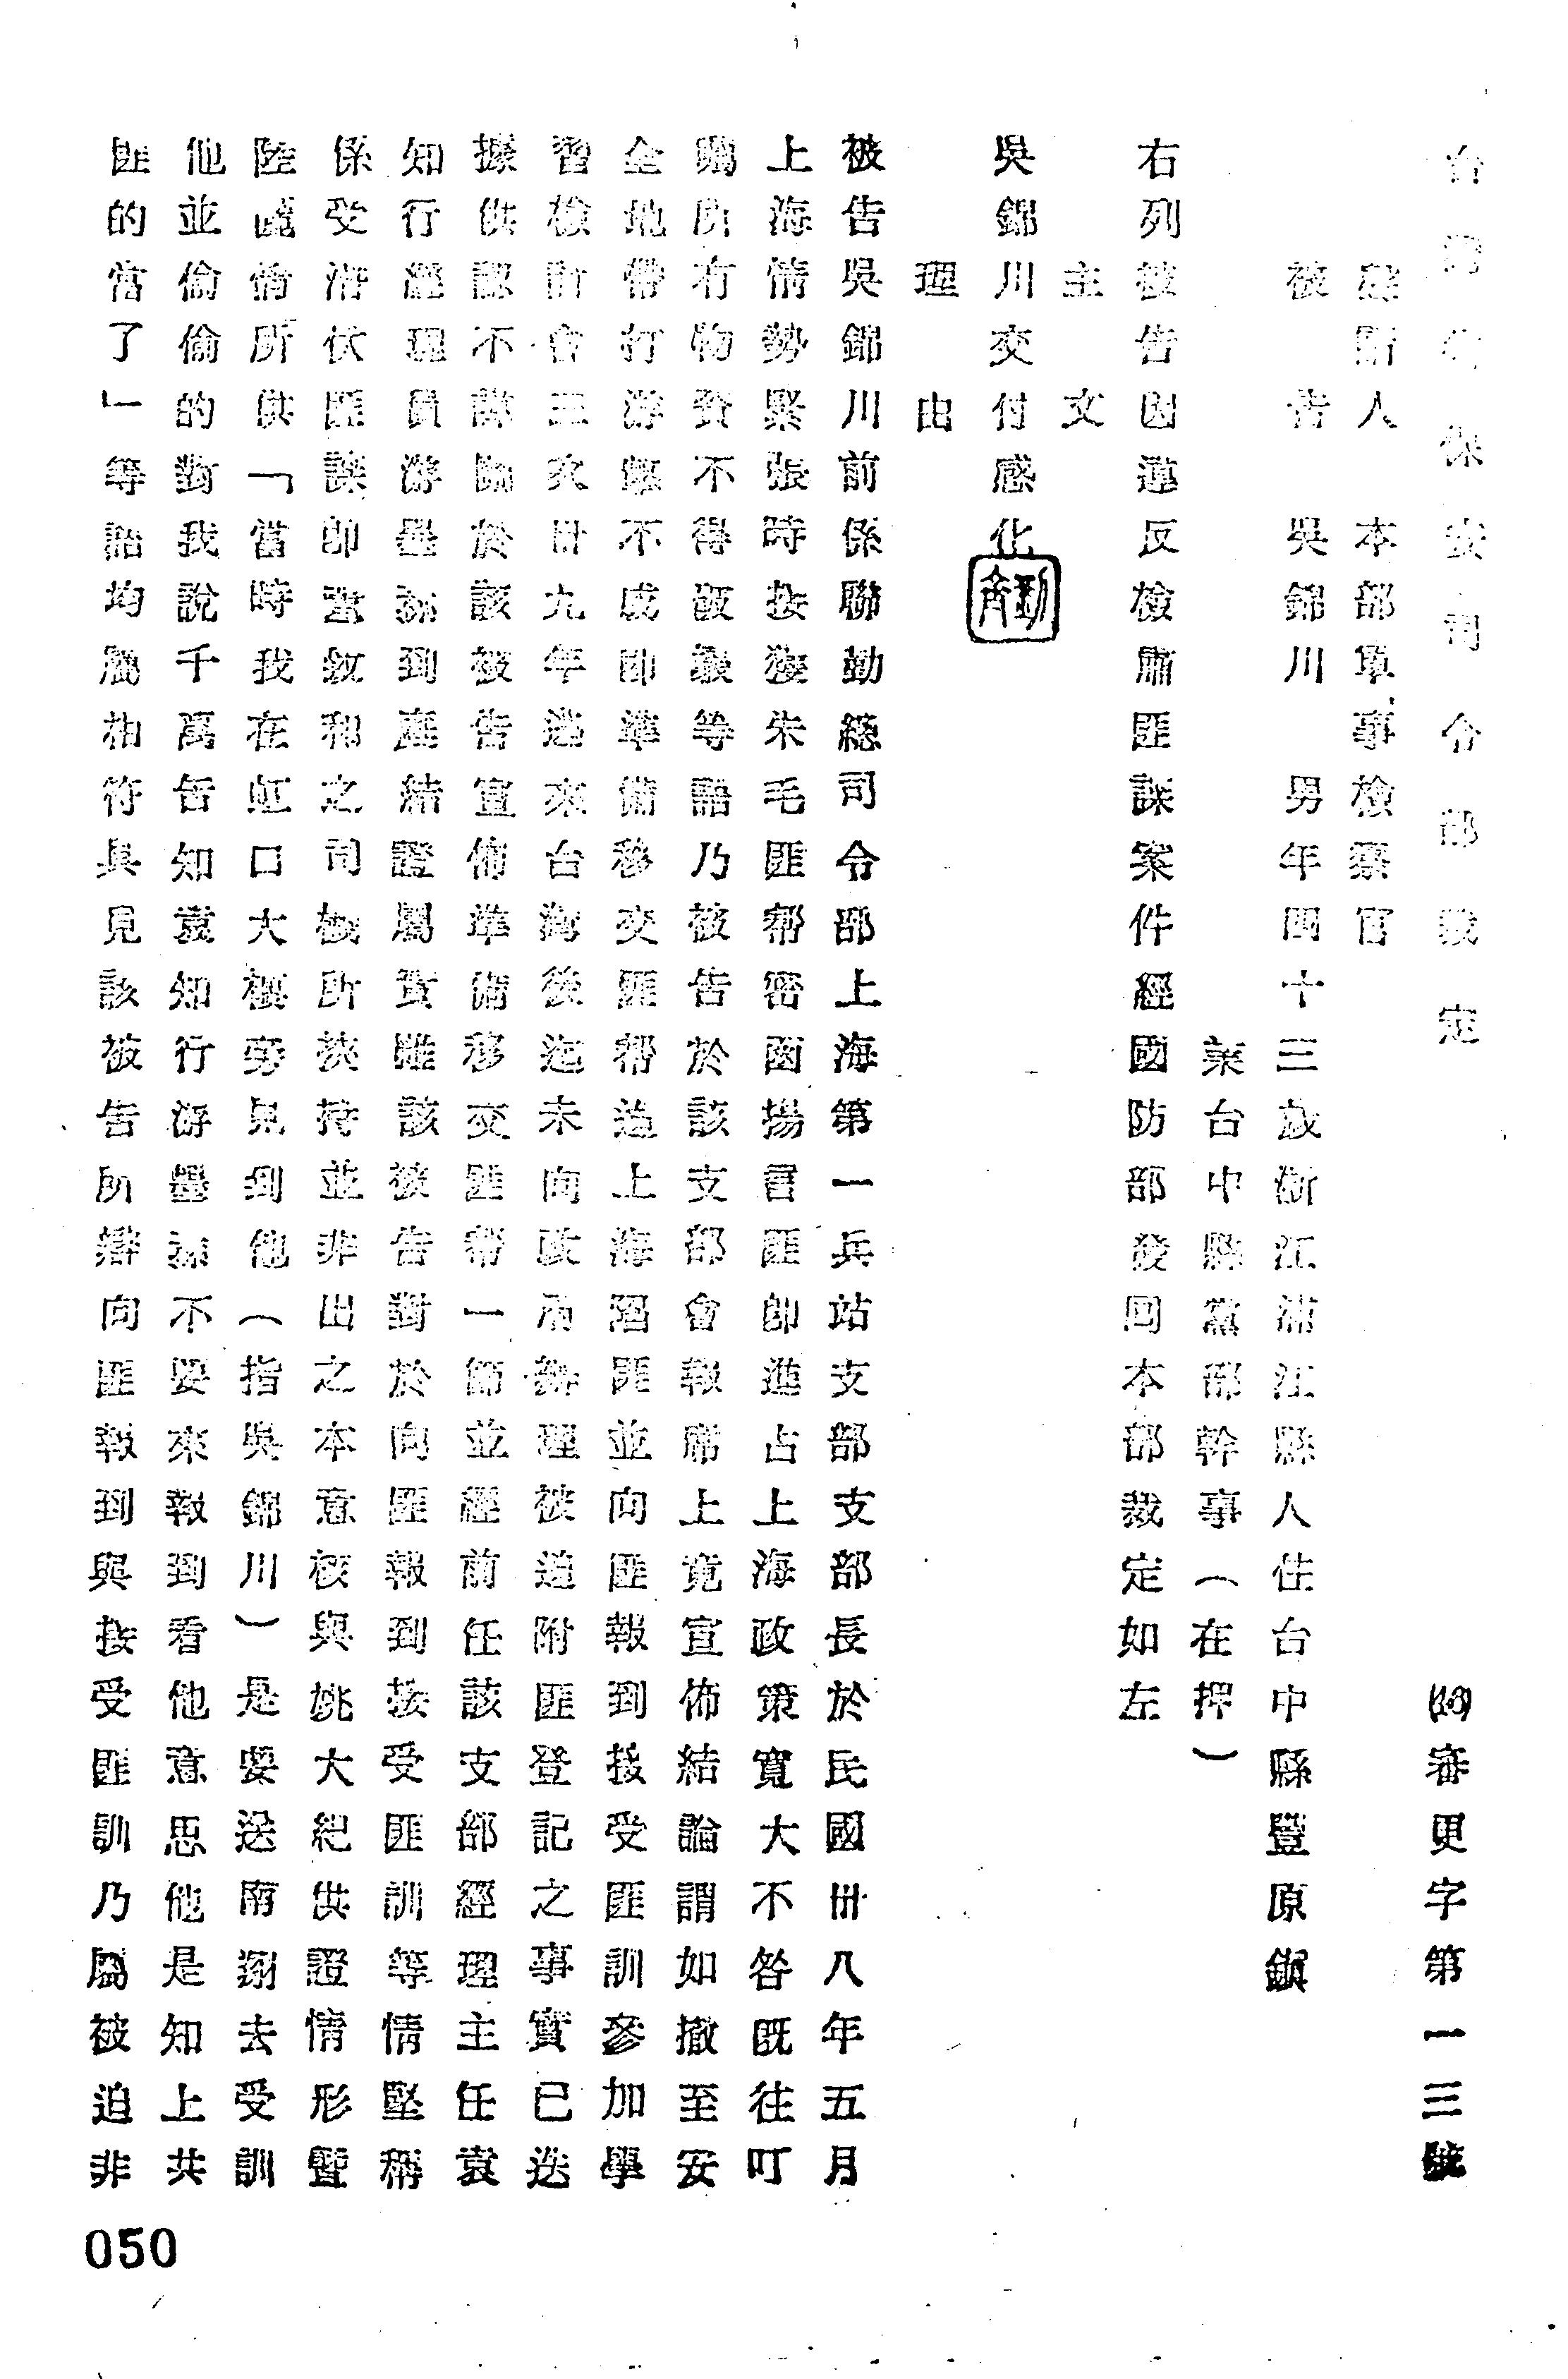 台灣省保安司令部裁定
(46)審更字第一三號
聲請人 本部軍事檢察官
被告 吳錦川 男年四十三歲浙江浦江縣人住台中縣豐原鎮
業台中縣黨部幹事(在押)
右列被告因違反檢肅匪諜案件經國防部發回本部裁定如左
主文
吳錦川交付感化
理由
被告吳錦川前係聯勤總司令部上海第一兵站支部支部長於民國卅八年五月
上海情勢緊張時接獲朱毛匪幫密函揚言匪即進占上海政策寬大不咎既往叮
囑所有物資不得破壞等語乃被告於該支部會報席上竟宣佈結論謂如撤至安
全地帶打游擊不成即準備移交匪幫迨上海淪匪並向匪報到接受匪訓參加學
習檢討會三次卅九年逃來台灣後迄未向政府辦理被迫附匪登記之事實已迭
據供認不諱關於該被告宣佈準備移交匪幫一節並經前任該支部經理主任袁
知行經理員游墨蓀到庭結證屬實雖該被告對於向匪報到接受匪訓等情堅稱
係受潛伏匪諜即當敘和之司機所挾持並非出之本意核與姚大紀供證情形暨
陸處倫所供「當時我在虹口大橋旁見到他(指吳錦川)是要送南翔去受訓
他並偷偷的對我說千萬告知袁知行游墨蓀不要來報到看他意思他是知上共
匪的當了」等語均屬相符具見該被告所辯向匪報到與接受匪訓乃屬被迫非
050